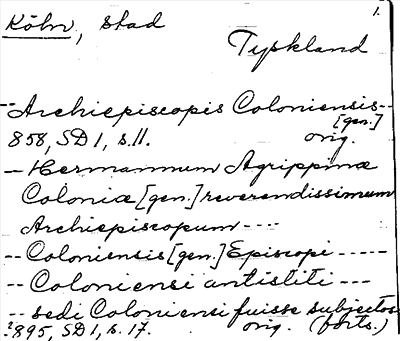 1.
Köln, stad
Tyskland
-- Archiepiscopis Coloniensis --
[gen.]
858, SD 1, s. 11. orig.
-- Hermannum Agrippinæ
Coloniæ [gen.] reverendissimum
Archiepiscopum ---
-- Coloniensis [gen.] Episcopi -----
-- Coloniensi antistiti ---
-- sedi Coloniensi fuisse subjectos
?895, SD 1, s. 17. orig. (forts.)